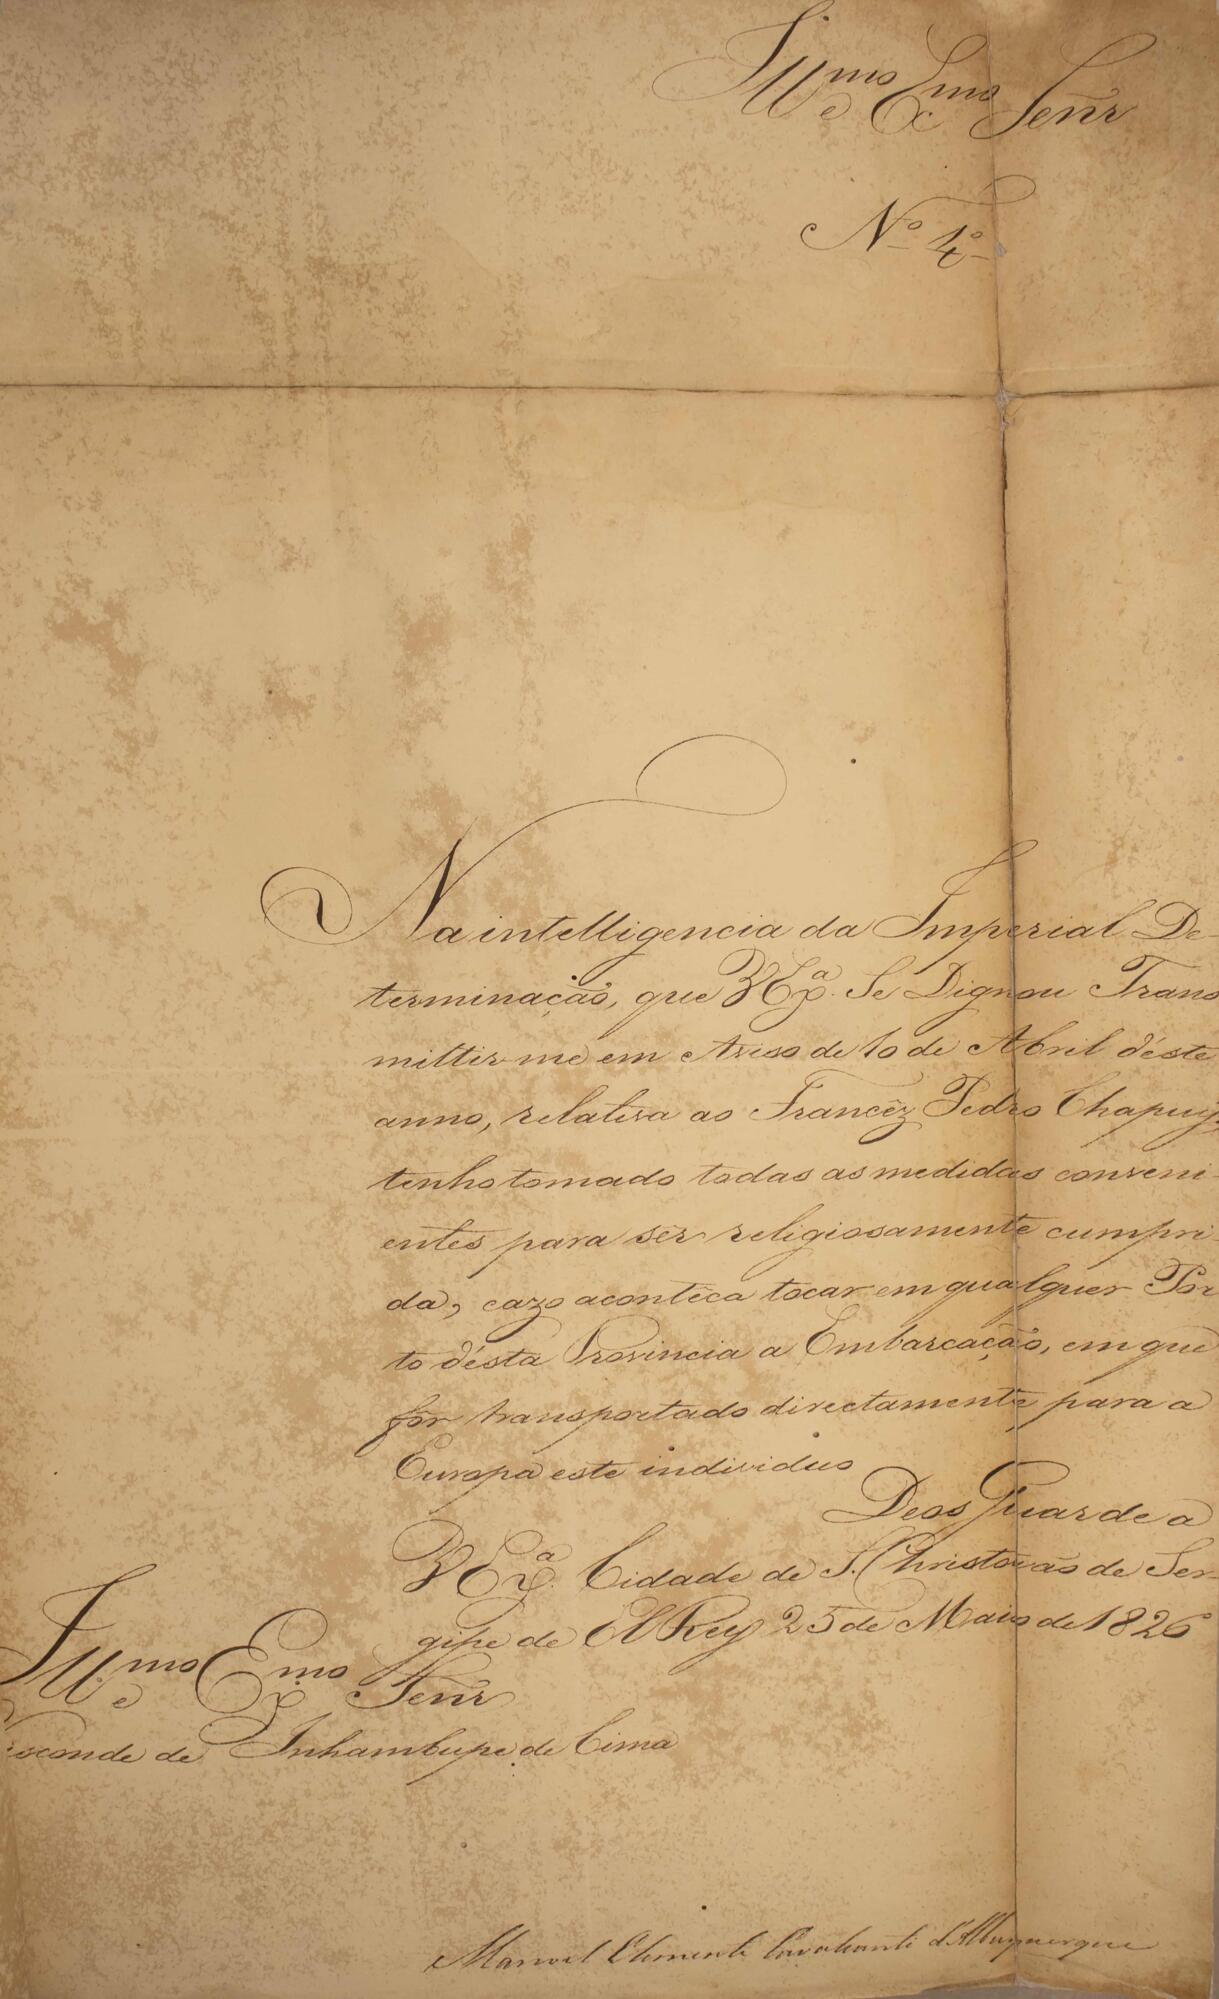 Ill.mo e Ex.mo Senr
Nº 4º
Na intelligencia da Imperial De-
terminação, que V Ex.ª Se Dignou Trans
mittir-me em Aviso de 10 de Abril d'éste
anno, relativa ao Francêz Pedro Chapuy,
tenho tomado todas as medidas conveni-
entes para sêr religiosamente cumpri-
da, cazo aconteca tocar em qualquer Por
to d'ésta Provincia a Embarcação, em que
fôr transportado directamente para a
Europa este individuo
Deos Guarde a
V Ex.ª Cidade de S. Christovão de Ser-
gipe de El Rey 25 de Maio de 1826
Ill.mo e Ex.mo Senr
Visconde de Inhambupe de Cima
Manoel Clemente Cavalcanti d'Albuquerque